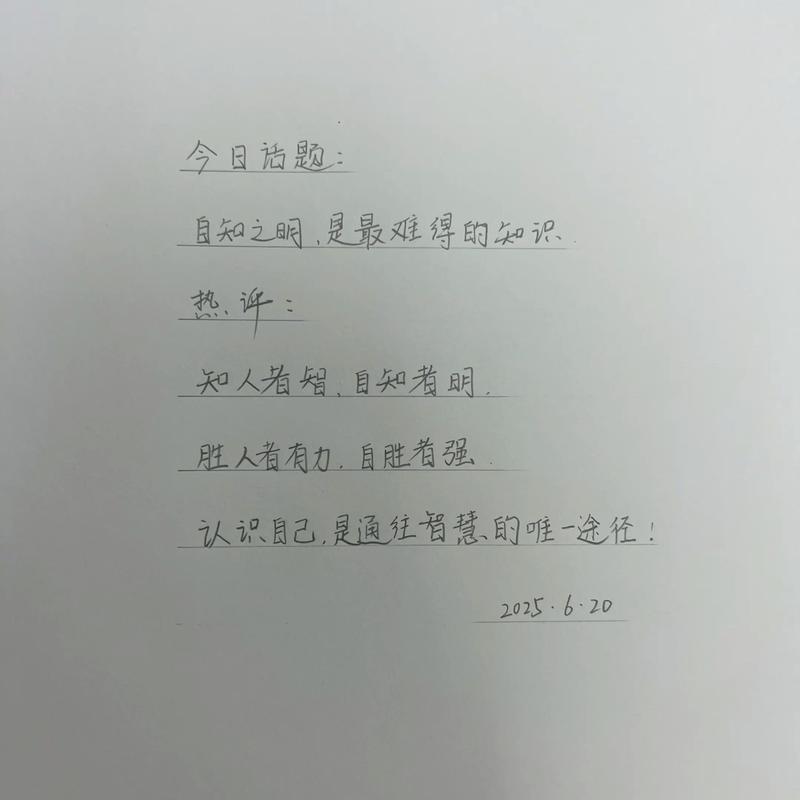 今日话题:
自知之明,是最难得的知识.
热评:
知人者智,自知者明.
胜人者有力,自胜者强.
认识自己,是通往智慧的唯一途径!
2025.6.20